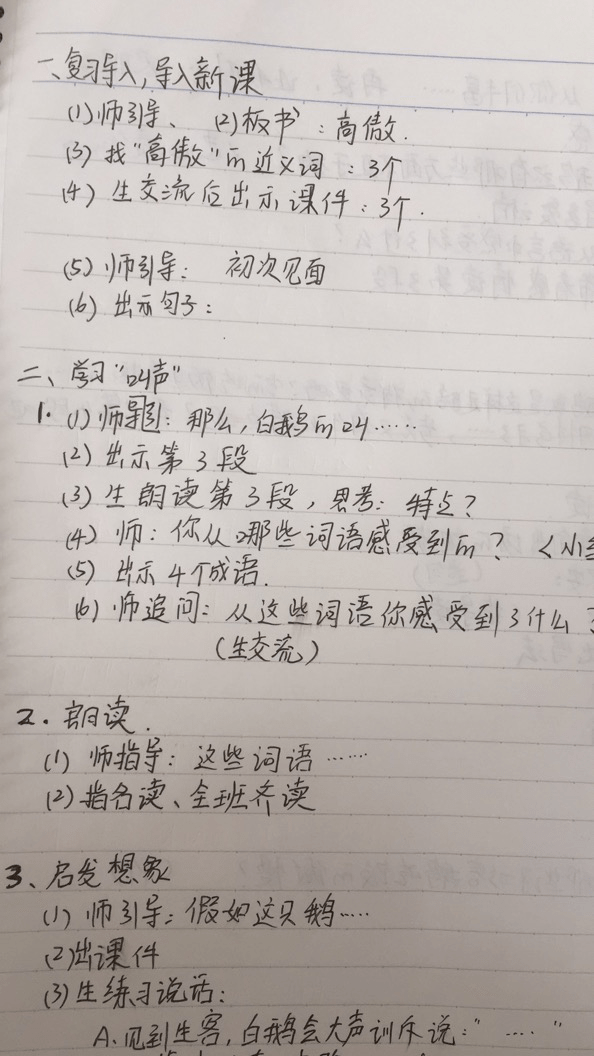 一、复习导入，导入新课
(1)师引导、 (2)板书：高傲.
(3) 找“高傲”的近义词：3个
(4) 生交流后出示课件：3个.
(5) 师引导： 初次见面
(6) 出示句子：
二、学习“叫声”
1. (1) 师引：那么，白鹅的叫……
(2) 出示第3段
(3) 生朗读第3段，思考：特点？
(4) 师：你从哪些词语感受到的？
(5) 出示4个成语.
(6) 师追问：从这些词语你感受到了什么？
(生交流)
2. 朗读.
(1) 师指导：这些词语……
(2) 指名读、全班齐读
3、启发想象
(1) 师引导：假如这只鹅……
(2)出课件
(3)生练习说话：
A.见到生客，白鹅会大声训斥说：“……”